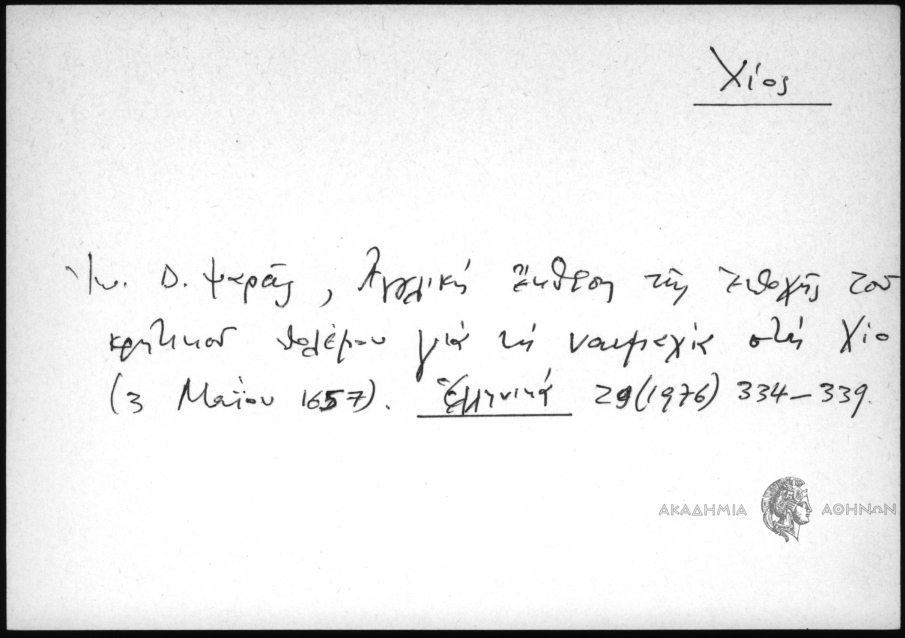 Χίος
Ἰω. Δ. Ψαράς, Ἀγγλική ἔκθεση τῆς ἐποχῆς τοῦ
κρητικοῦ πολέμου γιά τή ναυμαχία στή Χίο
(3 Μαΐου 1657). Ἑλληνικά 29(1976) 334–339.
ΑΚΑΔΗΜΙΑ ΑΘΗΝΩΝ